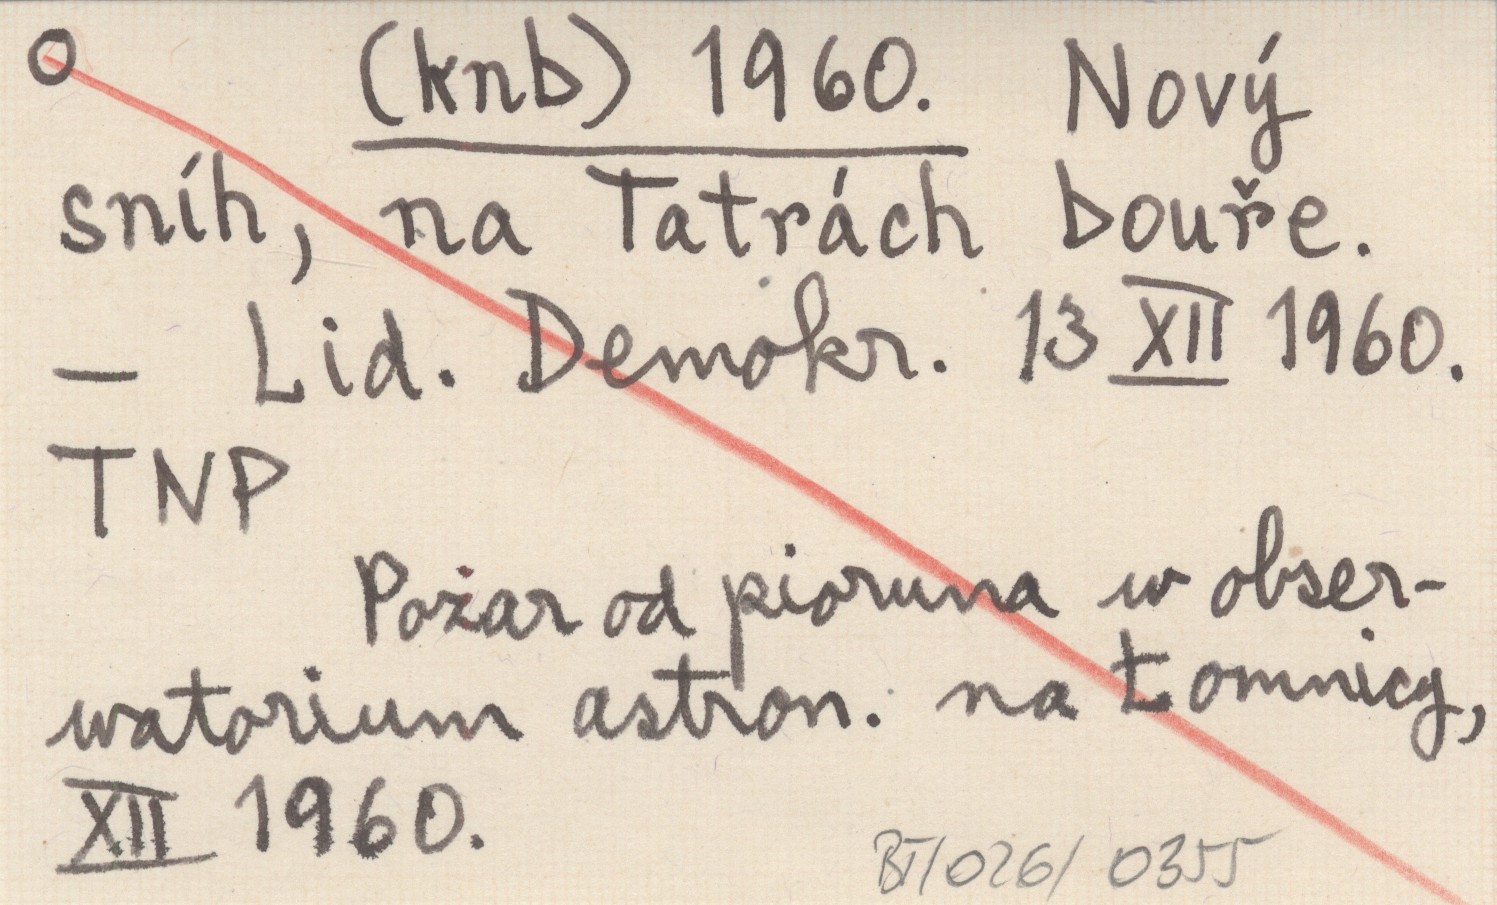 O (knb) 1960. Nový
sníh, na Tatrách bouře.
— Lid. Demokr. 13 XII 1960.
TNP
Pożar od pioruna w obser-
watorium astron. na Łomnicy,
XII 1960.
BT/026/ 0355